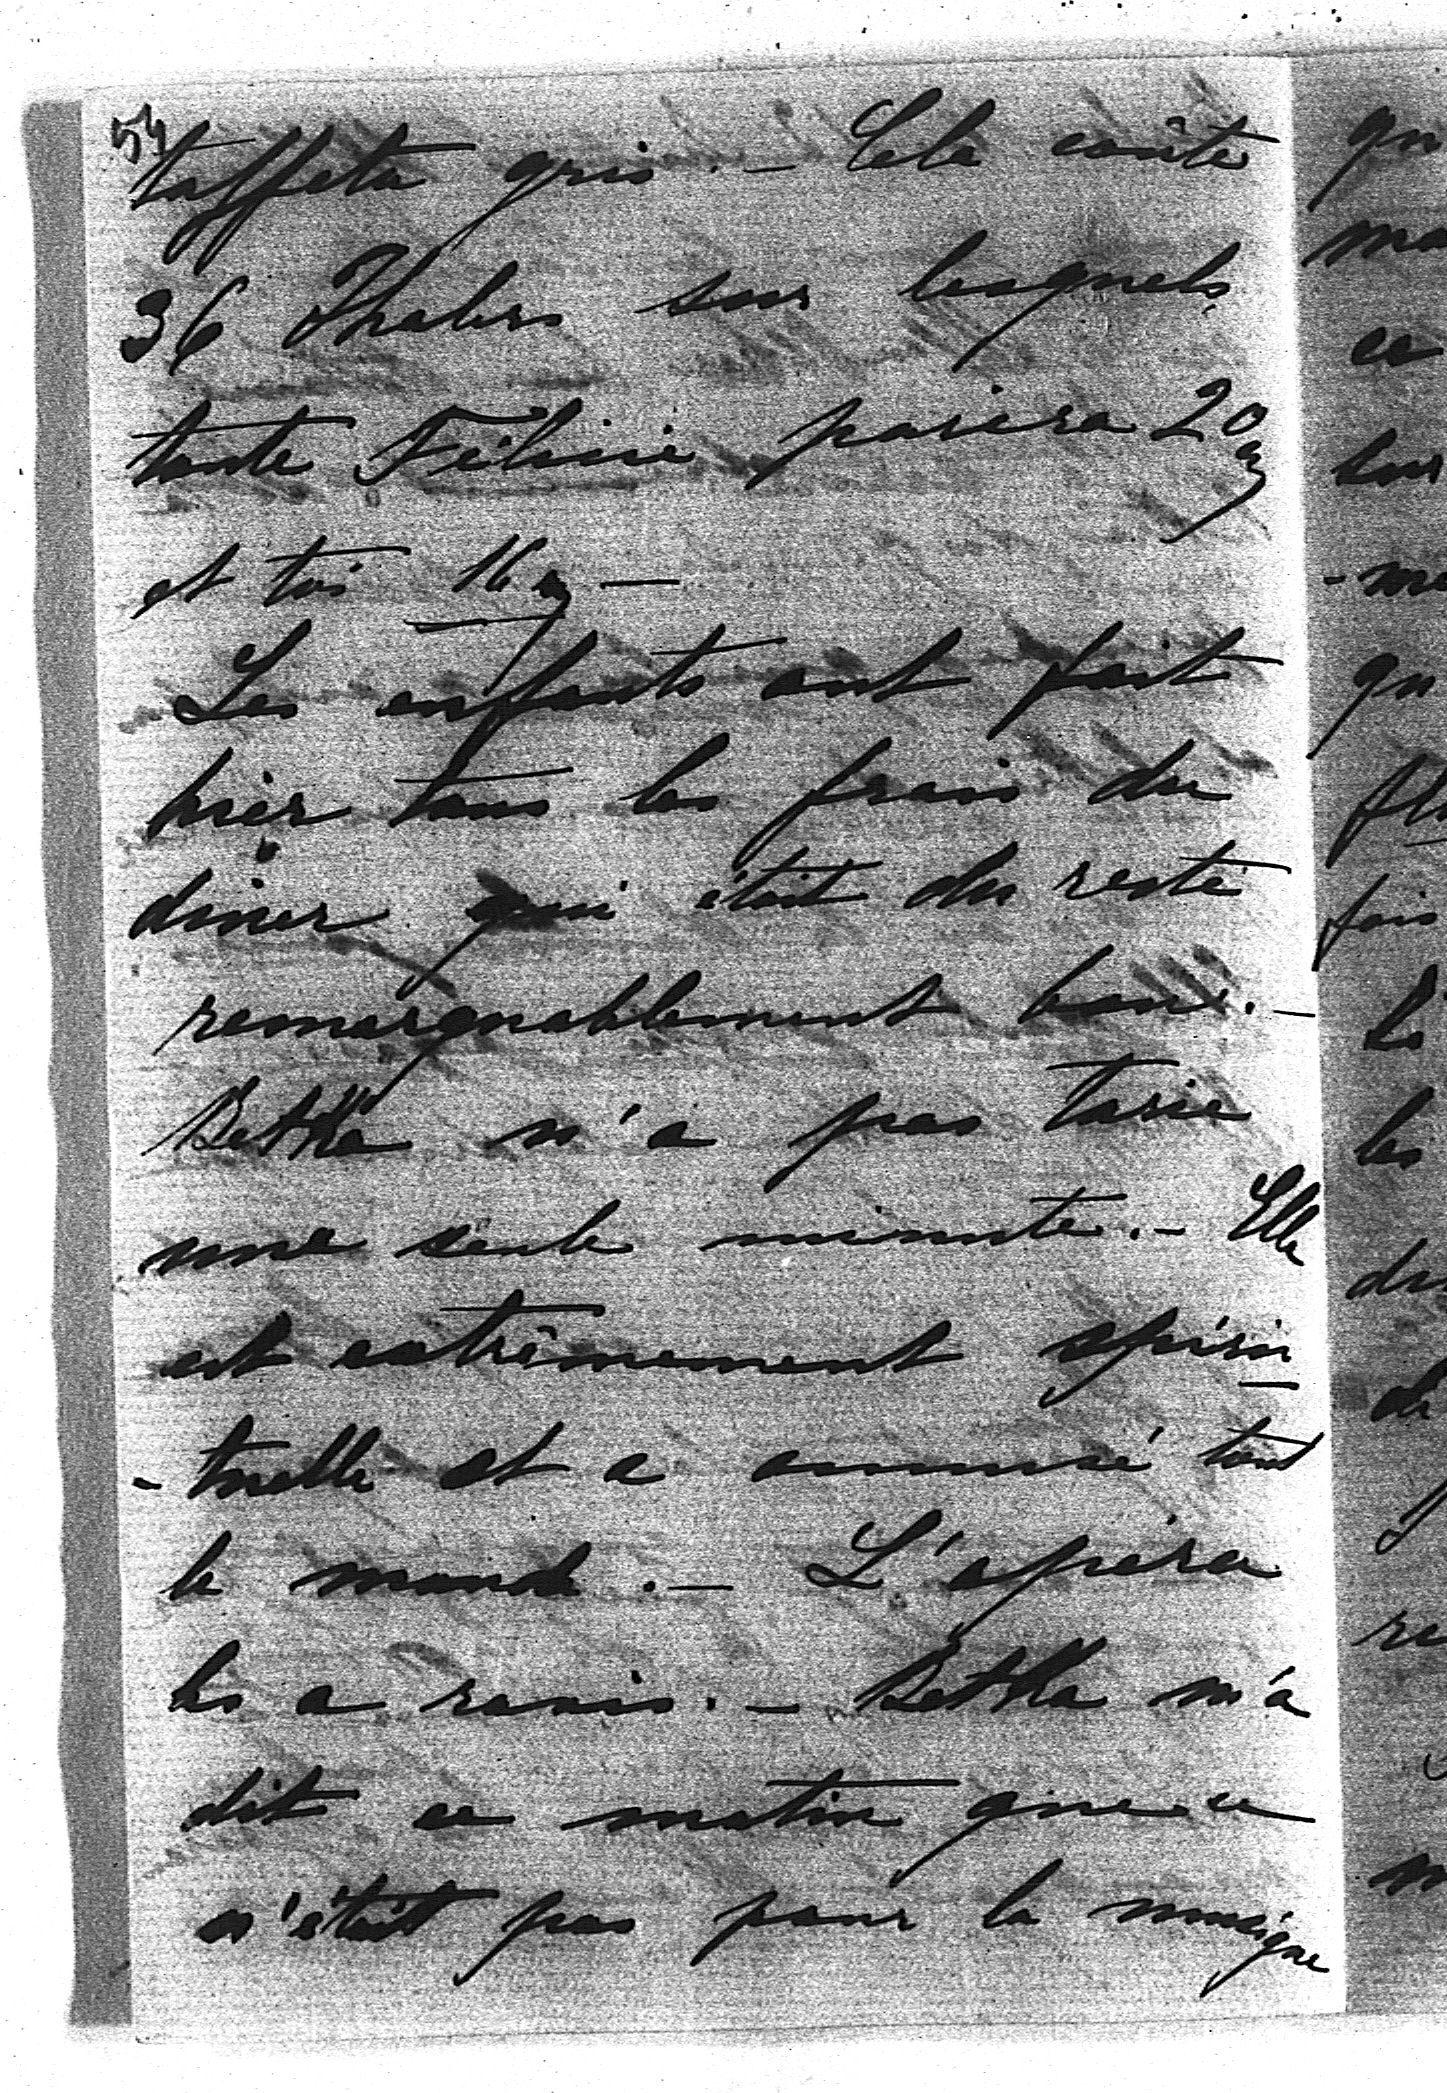 54
taffeta gris. — Cela coûte
36 Thalers sur lesquels
tante Félicie paiera 20
et toi 16 —
Les enfants ont fait
hier tous les frais du
diner qui était du reste
remarquablement bon. —
Betka n'a pas tarie
une seule minute. — Elle
est extrêmement spiri
- tuelle et a ammusé tout
le monde. — L'opéra
les a ravis. — Betka m'a
dit ce matin que ce
n'était pas pour la musique
qu
ma
ce
sur
- me
qu
fois
les